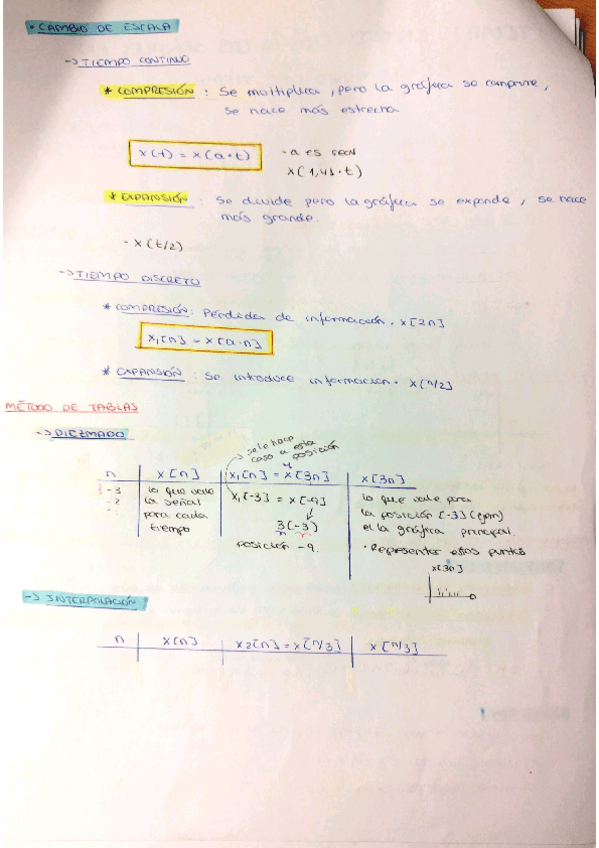 • CAMBIO DE ESCALA
-> TIEMPO CONTINUO
* COMPRESIÓN : Se multiplica, pero la gráfica se comprime,
se hace más estrecha
x(t) = x(a·t)
- a es real
x(1,41·t)
* EXPANSIÓN : Se divide pero la gráfica se expande, se hace
más grande.
- x(t/2)
-> TIEMPO DISCRETO
* COMPRESIÓN: Pérdida de información. x[2n]
x₁[n] = x[a·n]
* EXPANSIÓN : Se introduce información. x[n/2]
MÉTODO DE TABLAS
-> DIEZMADO
se le hace
caso a esta
posición
n | x[n] | x₁[n] = x[3n] | x[3n]
-3 | lo que vale | x₁[-3] = x[-9] | lo que vale para
-2 | la señal | la posición [-3]
para cada | 3(-3) | la gráfica principal.
tiempo | n
posición -9. | · Representar estos puntos
x[3n]
-> INTERPOLACIÓN
n | x[n] | x₂[n] = x[n/3] | x[n/3]